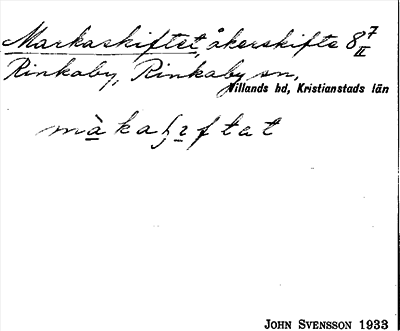 Markaskiftet, åkerskifte 8 7/II
Rinkaby, Rinkaby sn,
Villands hd, Kristianstads län
JOHN SVENSSON 1933